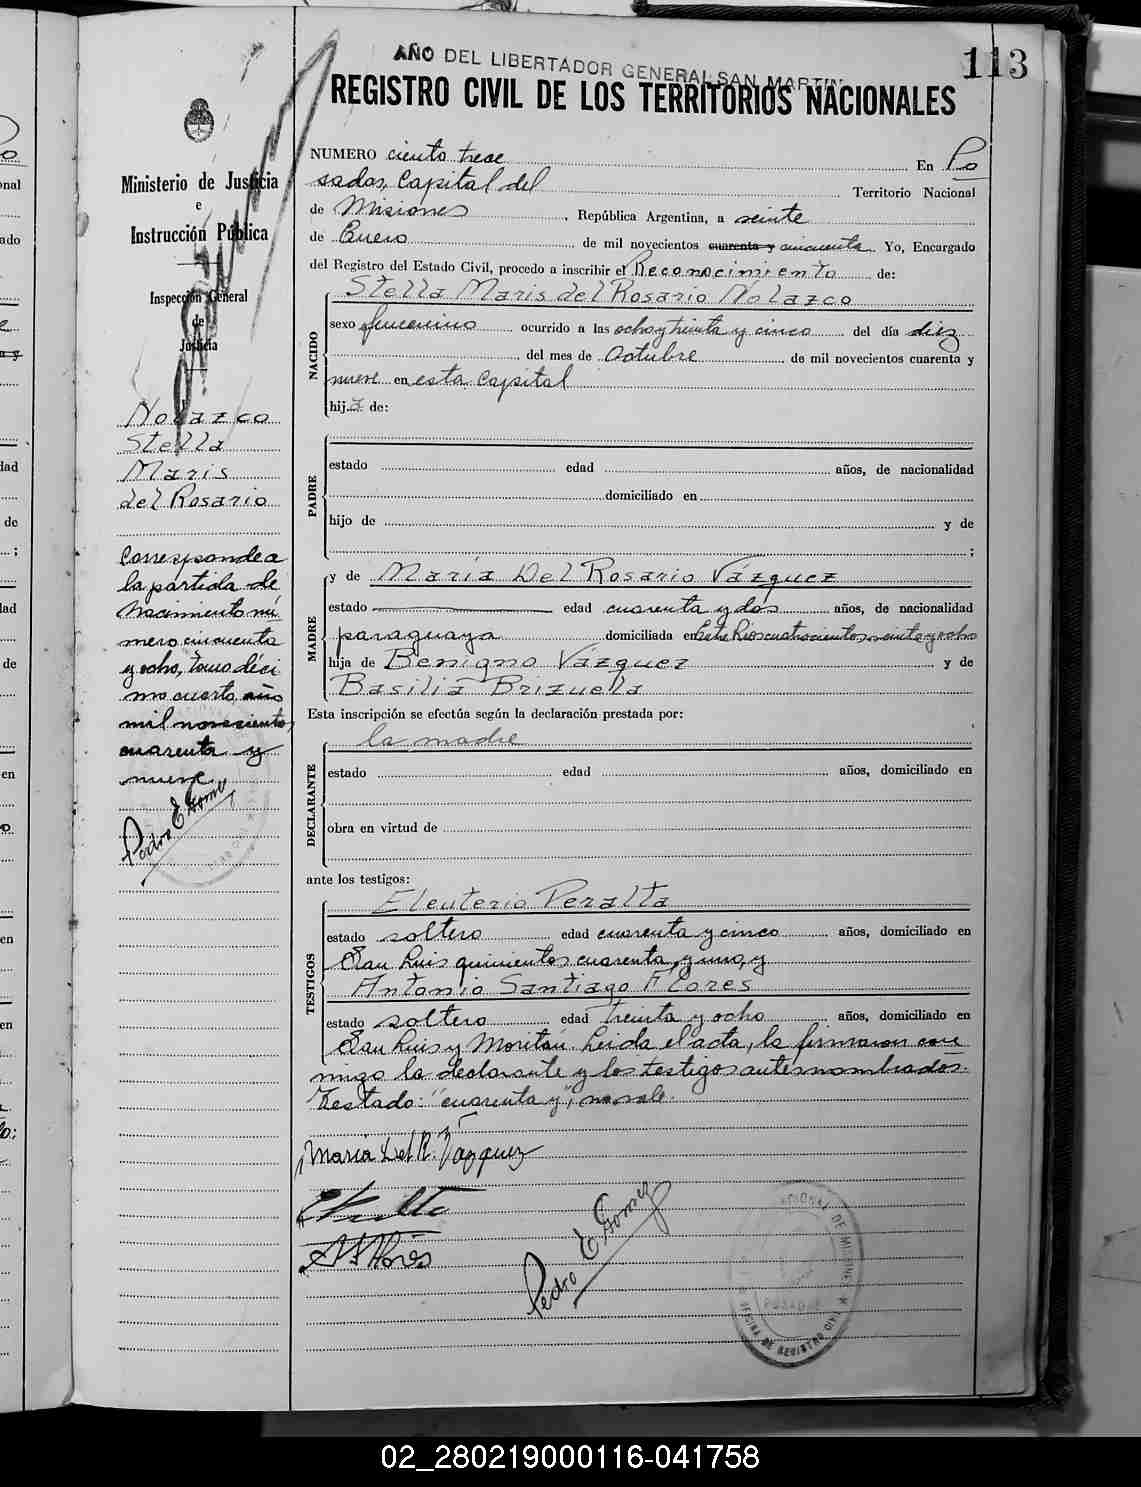 AÑO DEL LIBERTADOR GENERAL SAN MARTIN
113
REGISTRO CIVIL DE LOS TERRITORIOS NACIONALES
Ministerio de Justicia
e
Instrucción Pública
Inspección General
de
Justicia
Nolazco
Stella
Maris
del Rosario
Corresponde a
la partida de
Nacimiento nú
mero cincuenta
y ocho, tomo déci
mo cuarto año
mil novecientos
cuarenta y
nueve
Pedro E Gomez
NUMERO ciento trece En Po
sadas, Capital del Territorio Nacional
de Misiones, República Argentina, a veinte
de Enero de mil novecientos cuarenta y cincuenta Yo, Encargado
del Registro del Estado Civil, procedo a inscribir el Reconocimiento de:
Stella Maris del Rosario Nolazco
NACIDO
sexo femenino ocurrido a las ocho y treinta y cinco del día diez
del mes de Octubre de mil novecientos cuarenta y
nueve en esta Capital
hija de:
PADRE
estado edad años, de nacionalidad
domiciliado en
hijo de y de
;
MADRE
y de María Del Rosario Vázquez
estado edad cuarenta y dos años, de nacionalidad
paraguaya domiciliada en Entre Rios cuatrocientos veinte y ocho
hija de Benigno Vázquez y de
Basilia Brizuela
Esta inscripción se efectúa según la declaración prestada por:
la madre
DECLARANTE
estado edad años, domiciliado en
obra en virtud de
ante los testigos:
TESTIGOS
Eleuterio Peralta
estado soltero edad cuarenta y cinco años, domiciliado en
San Luis quinientos cuarenta y uno, y
Antonio Santiago Flores
estado soltero edad treinta y ocho años, domiciliado en
San Luis y Moritán. Leida el acta, la firmaron con
migo la declarante y los testigos antes nombrados.
Testado: "cuarenta y", no vale.
María Del R. Vázquez
A S Flores
Pedro E. Gomez
POSADAS
OFICINA DE REGISTRO CIVIL
02_280219000116-041758